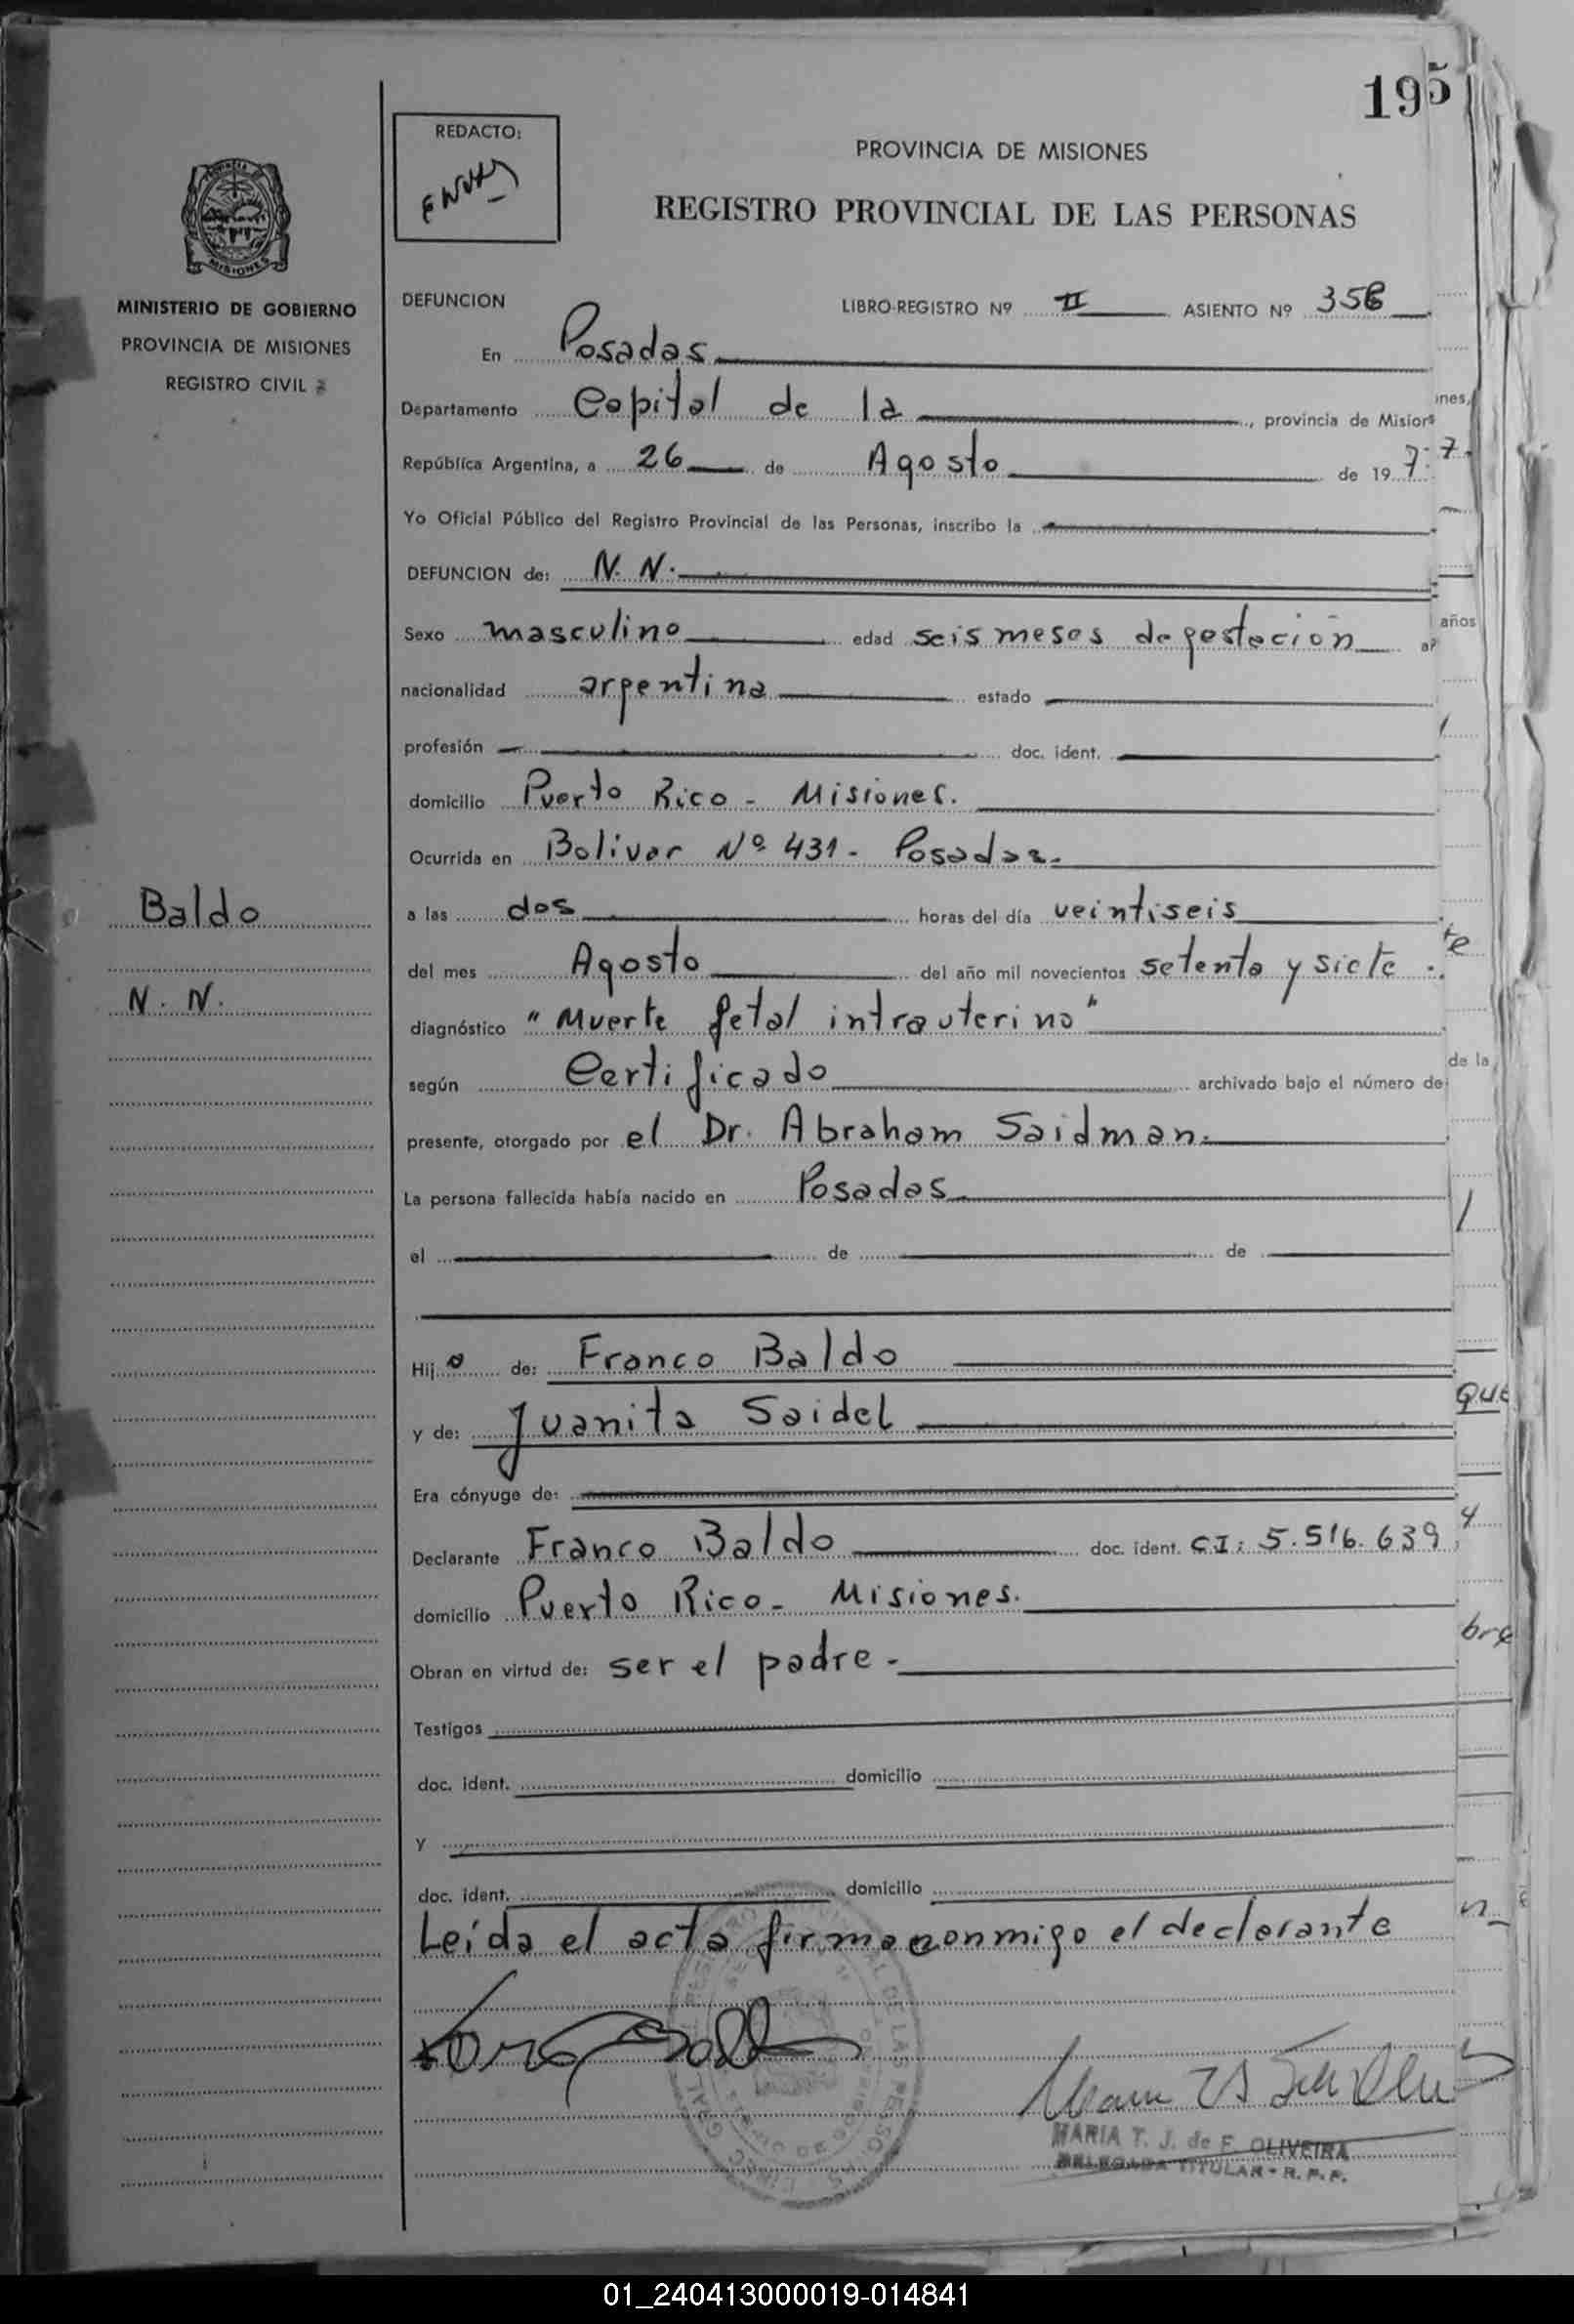 195
REDACTO:
PROVINCIA DE MISIONES
REGISTRO PROVINCIAL DE LAS PERSONAS
MISIONES
MINISTERIO DE GOBIERNO
PROVINCIA DE MISIONES
REGISTRO CIVIL
DEFUNCION LIBRO-REGISTRO Nº II ASIENTO Nº 356
En Posadas
Departamento Capital de la, provincia de Misiones,
República Argentina, a 26 de Agosto de 1977
Yo Oficial Público del Registro Provincial de las Personas, inscribo la
DEFUNCION de: N. N.
Sexo masculino edad seis meses de gestación años
nacionalidad argentina estado
profesión doc. ident.
domicilio Puerto Rico - Misiones.
Ocurrida en Bolivar Nº 431 - Posadas.
Baldo
N. N.
a las dos horas del día veintiseis
del mes Agosto del año mil novecientos setenta y siete
diagnóstico "Muerte fetal intrauterino"
según Certificado archivado bajo el número de la
presente, otorgado por el Dr. Abraham Saidman.
La persona fallecida había nacido en Posadas
el de de
Hijo de: Franco Baldo
y de: Juanita Saidel
Era cónyuge de:
Declarante Franco Baldo doc. ident. CI: 5.516.639
domicilio Puerto Rico - Misiones.
Obran en virtud de: ser el padre -
Testigos
doc. ident. domicilio
y
doc. ident. domicilio
Leída el acta firma conmigo el declarante
MARIA T. J. de F. OLIVEIRA
DELEGADA TITULAR - R. P. P.
01_240413000019-014841